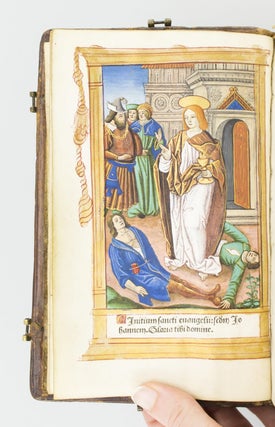 Initium sancti euangelii scd'm Jo
hannem. Gloria tibi domine.